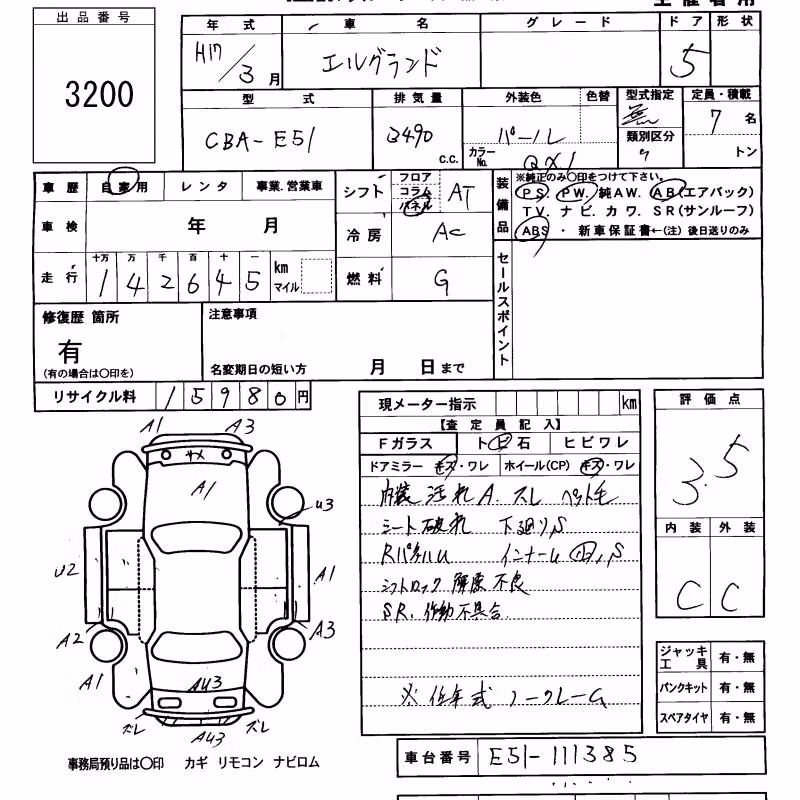 出品番号
3200
年式 車名 グレード ドア 形状
H17/3月 エルグランド 5
型式 排気量 外装色 色替 型式指定 定員・積載
CBA-E51 3490 C.C. パール 無 7名
カラーNo. QX1 類別区分 トン
車歴 自家用 レンタ 事業.営業車
シフト フロア コラム パネル AT
装備品 ※純正のみ〇印をつけて下さい。
PS PW. 純AW. AB(エアバック)
TV. ナビ. カワ. SR(サンルーフ)
ABS ・ 新車保証書←(注) 後日送りのみ
車検 年 月
冷房 AC
走行 十万 万 千 百 十 一
142645 km マイル
燃料 G
セールスポイント
修復歴 箇所
有
(有の場合は〇印を)
注意事項
名変期日の短い方 月 日まで
リサイクル料 15980円
現メーター指示 km
評価点
3.5
【査定員記入】
Fガラス トビ石 ヒビワレ
ドアミラー キズ・ワレ ホイール(CP) キズ・ワレ
内装 汚れ A. スレ ペット毛
シート破れ 下廻りS
RパネルU インナーU 凹, S
シフトロック 解除不良
SR. 作動不具合
※ 低年式 ノークレーム
内装 外装
C C
A1 A3
サメ
A1
U3
U2 A1
A2 A3
A1
AU3
ズレ ズレ
AU3
ジャッキ工具 有・無
パンクキット 有・無
スペアタイヤ 有・無
事務局預り品は〇印 カギ リモコン ナビロム
車台番号 E51-111385